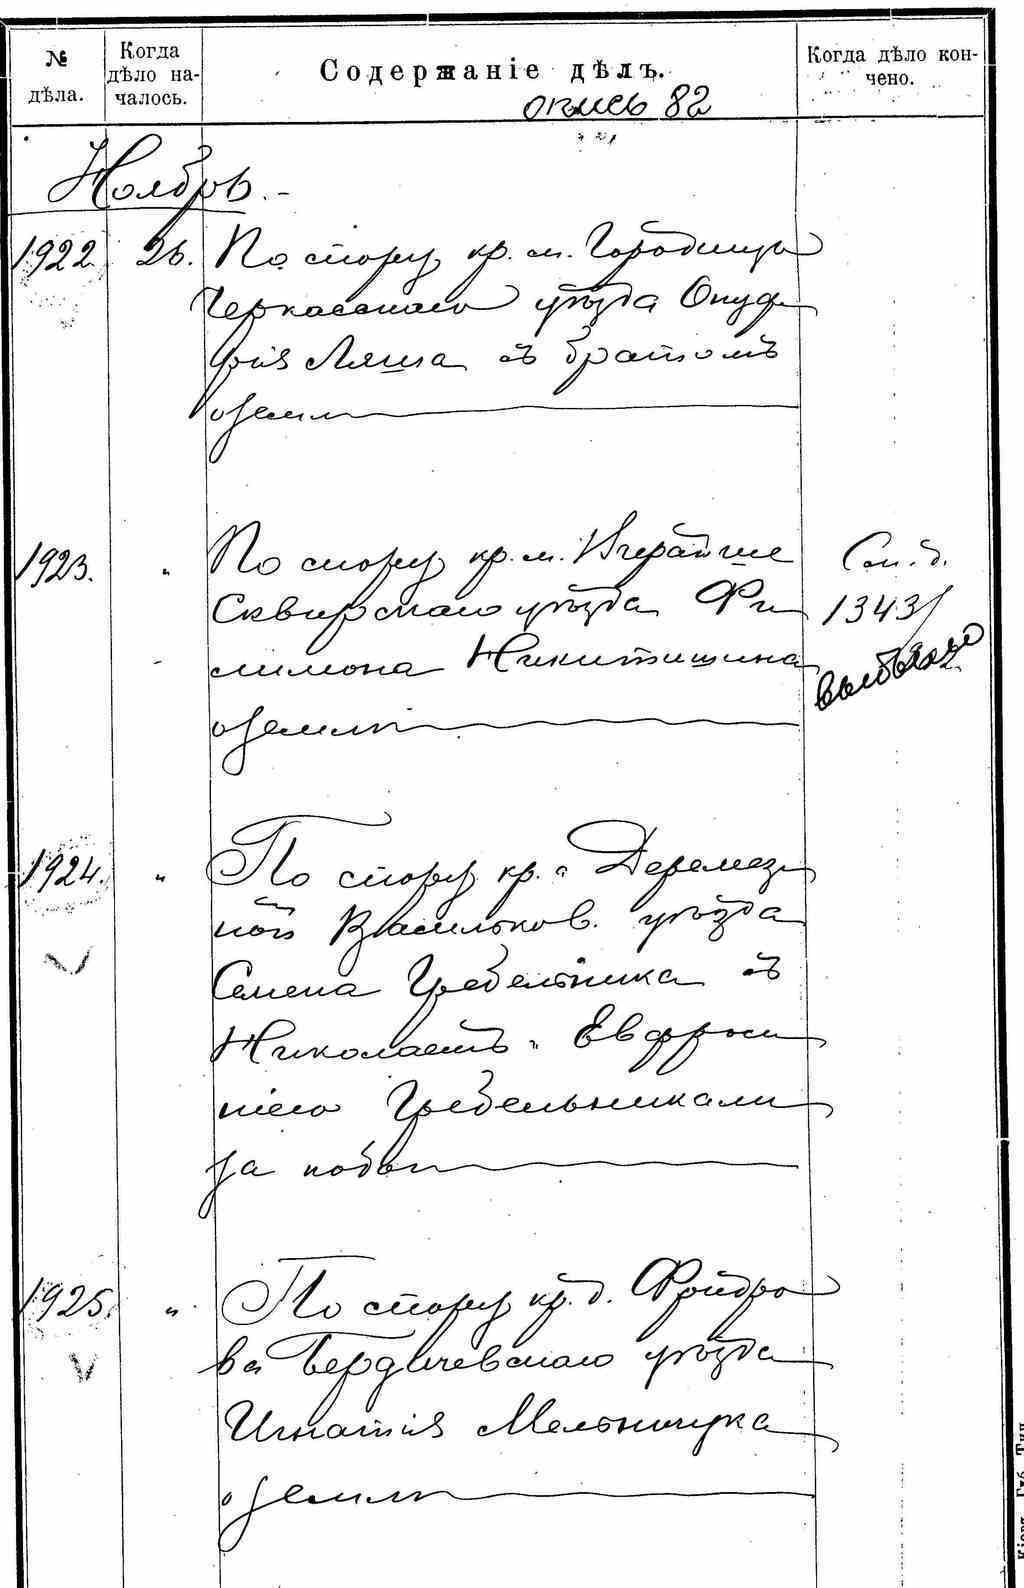 № дѣла.
Когда дѣло на-
чалось.
Содержаніе дѣлъ.
Когда дѣло кон-
чено.
опись 82
Ноябрь.
1922. 26. По спору кр. м. Городища
Черкасскаго уѣзда Онуф
рія Ляша съ братомъ
о земли
1923. " По спору кр. м. Вчерайше
Сквирскаго уѣзда Фи
лимона Никитишина
о земли
Соп. д.
1343/
выбыло
1924. " По спору кр. с. Деремез
ной Васильков. уѣзда
Семена Гребельника съ
Николаемъ и Евфроси
ніею Гребельниками
за побои
1925. " По спору кр. д.
ва Бердичевскаго уѣзда
Игнатія Мельничука
о земли
Кіевъ. Губ. Тип.